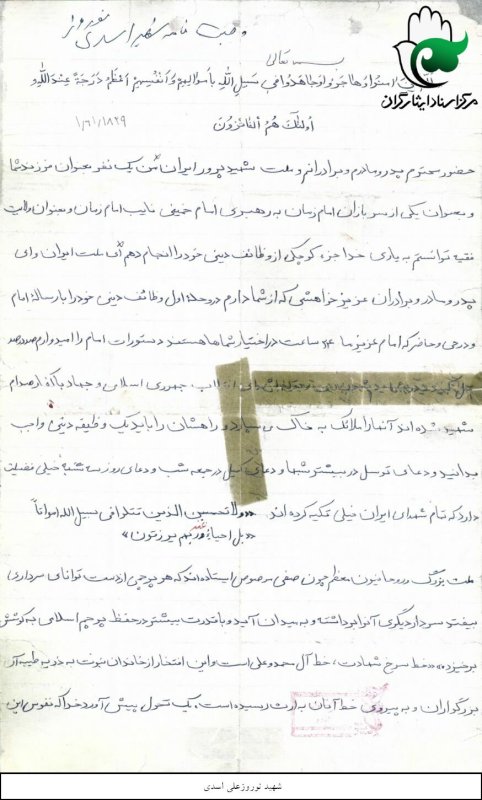 وصیت نامه شهید اسدی نوروز
مرکز اسناد ایثارگران
بسمه تعالی
الذین امنوا و هاجروا و جاهدوا فی سبیل اللهِ باموالهم و انفسهم اعظم درجة عند الله و
اولئک هم الفائزون
۱/۶/۱۸۲۹
حضور محترم پدر و مادرم و برادرانم و ملت شهید پرور ایران من یک نفر بعنوان فرزند شما
و بعنوان یکی از سربازان امام زمان به رهبری امام خمینی نایب امام زمان و بعنوان ولایت
فقیه توانستم به یاری خدا جزء کوچکی از وظائف دینی خود را انجام دهم ای ملت ایران و ای
پدر و مادر و برادران عزیز خواهشی که از شما دارم در وحلهٔ اول وظائف دینی خود را با رسالهٔ امام
و در حی و حاضر که امام عزیز ما ۲۴ ساعت در اختیار شماها هستند دستورات امام را امیدوارم صد در صد
انقلاب جمهوری اسلامی و جهاد با کفار صدام
شهید شده اند آنها را ملائک به خاک می سپارد و راهشان را باید یک وظیفه دینی واجب
بدانید و دعای توسل در بیشتر شبها و دعای کمیل در جمعه شب و دعای روز سه شنبه خیلی فضیلت
دارد که تمام شهدای ایران خیلی تکیه کرده اند «ولا تحسبن الذین قتلوا فی سبیل الله امواتاً
«بل احیاءٌ عند ربهم یرزقون»
ملت بزرگ و روحانیون معظم چون صفی مرصوص ایستاده اند که هر پرچمی از دست توانای سرداری
بیفتد سردار دیگری آنرا برداشته و به میدان آمده و با قدرت بیشتر در حفظ پرچم اسلامی به کوشش
برخیزد» «خط سرخ شهادت، خط آل محمد و علی است و این افتخار از خاندان نبوت به ذریه طیبه آن
بزرگواران و به پیروی خط آنان به ارث رسیده است، یک تحول پیش آورد خدا که نفوس این
شهید نوروزعلی اسدی